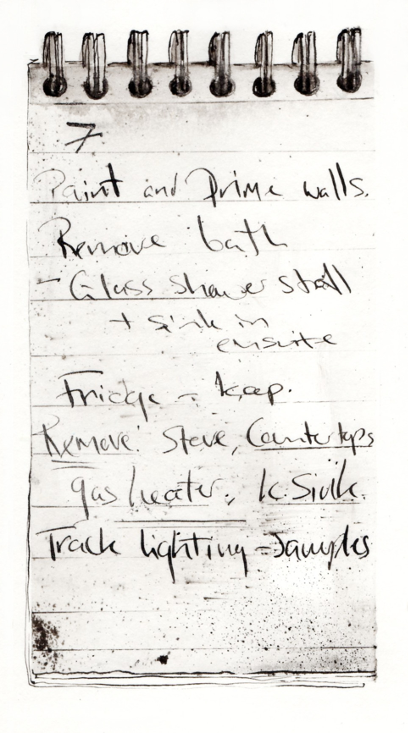 7
Paint and Prime walls.
Remove bath
- Glass shower stall
+ sink in
ensuite
Fridge - keep.
Remove: Stove, Countertops
gas heater, K. Sink.
Track lighting - Samples